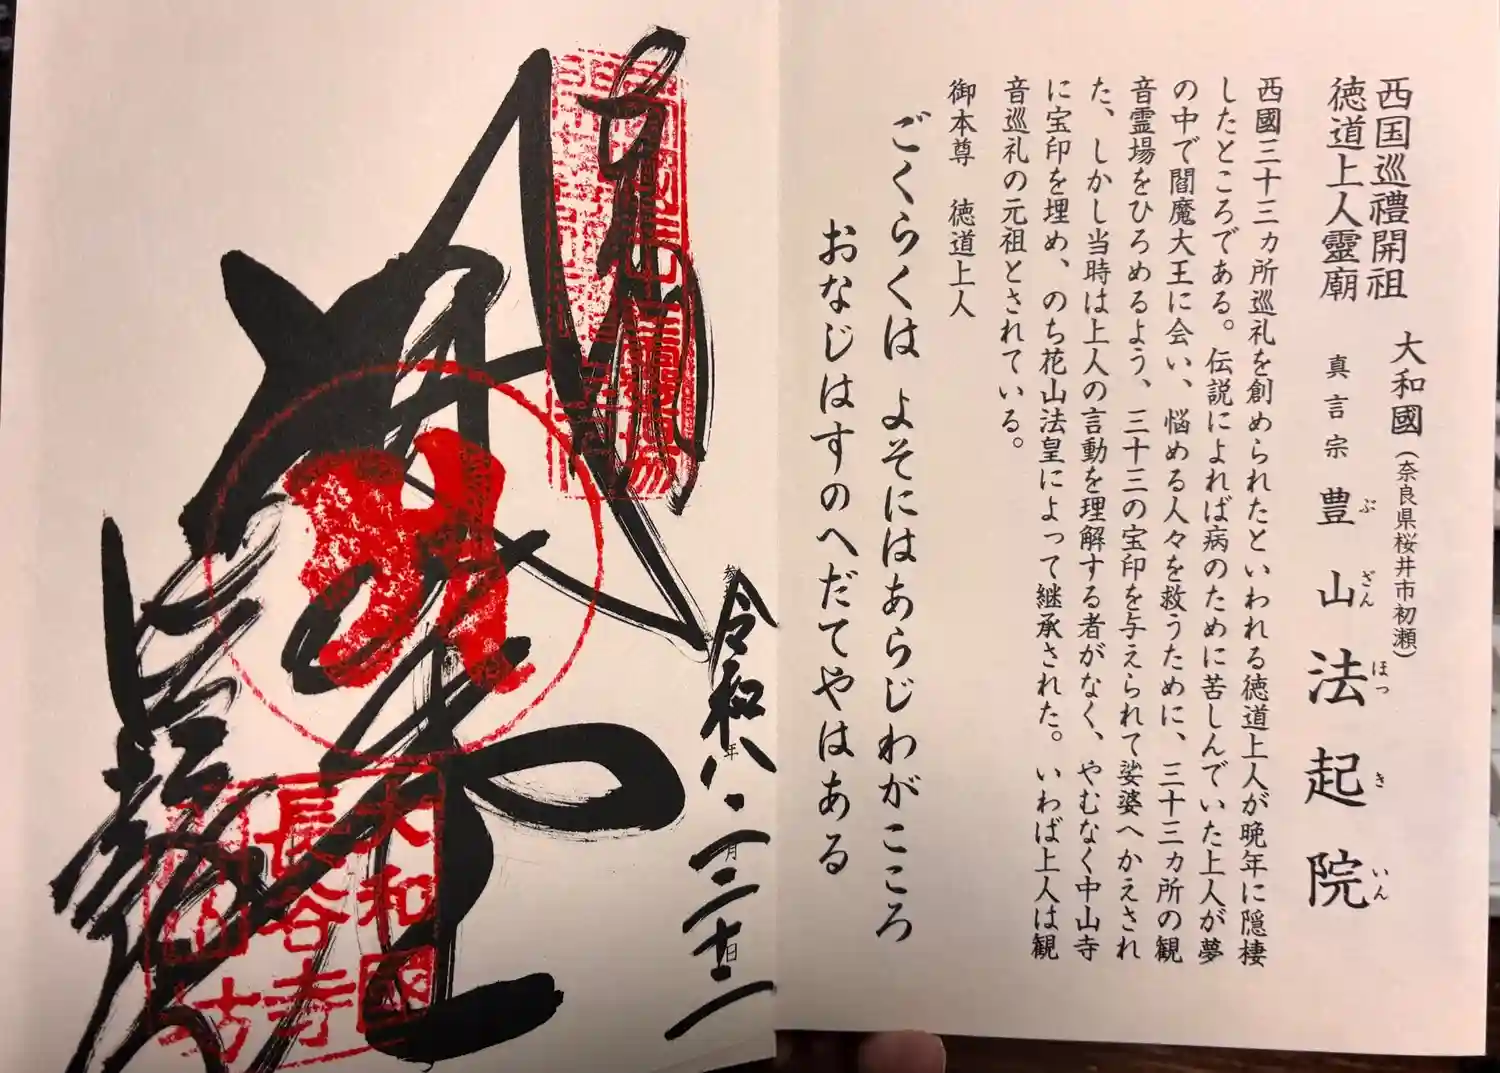 西国巡禮開祖
徳道上人靈廟
大和國（奈良県桜井市初瀬）
真言宗 豊山法起院
ぶざんほっきいん
西國三十三ヵ所巡礼を創められたといわれる徳道上人が晩年に隠棲
したところである。伝説によれば病のために苦しんでいた上人が夢
の中で閻魔大王に会い、悩める人々を救うために、三十三ヵ所の観
音霊場をひろめるよう、三十三の宝印を与えられて娑婆へかえされ
た、しかし当時は上人の言動を理解する者がなく、やむなく中山寺
に宝印を埋め、のち花山法皇によって継承された。いわば上人は観
音巡礼の元祖とされている。
御本尊 徳道上人
ごくらくは よそにはあらじわがこころ
おなじはすのへだてやはある
令和八年二月二十二日
大和國
長谷寺